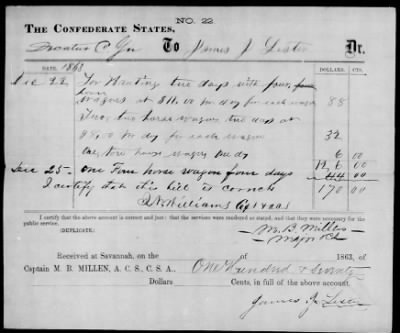 NO. 22
THE CONFEDERATE STATES,
To James J Lester Dr.
DATE, 1863 DOLLARS. CTS.
Dec 22 For Hauling two days with four
horse
wagons at $11.00 pr day for each wagon 88
Two, two horse wagons two days at
$8.00 pr day for each wagon 32
One two horse wagon one day 6 00
126 00
Dec 25 - One Four horse wagon four days 44 00
I certify that this bill is correct 170 00
Williams
I certify that the above account is correct and just: that the services were rendered as stated, and that they were necessary for the public service.
DUPLICATE. M. B. Millen
Major
Received at Savannah, on the of 1863, of
Captain M. B. MILLEN, A. C. S., C. S. A., One Hundred & Seventy
Dollars Cents, in full of the above account.
James J Lester